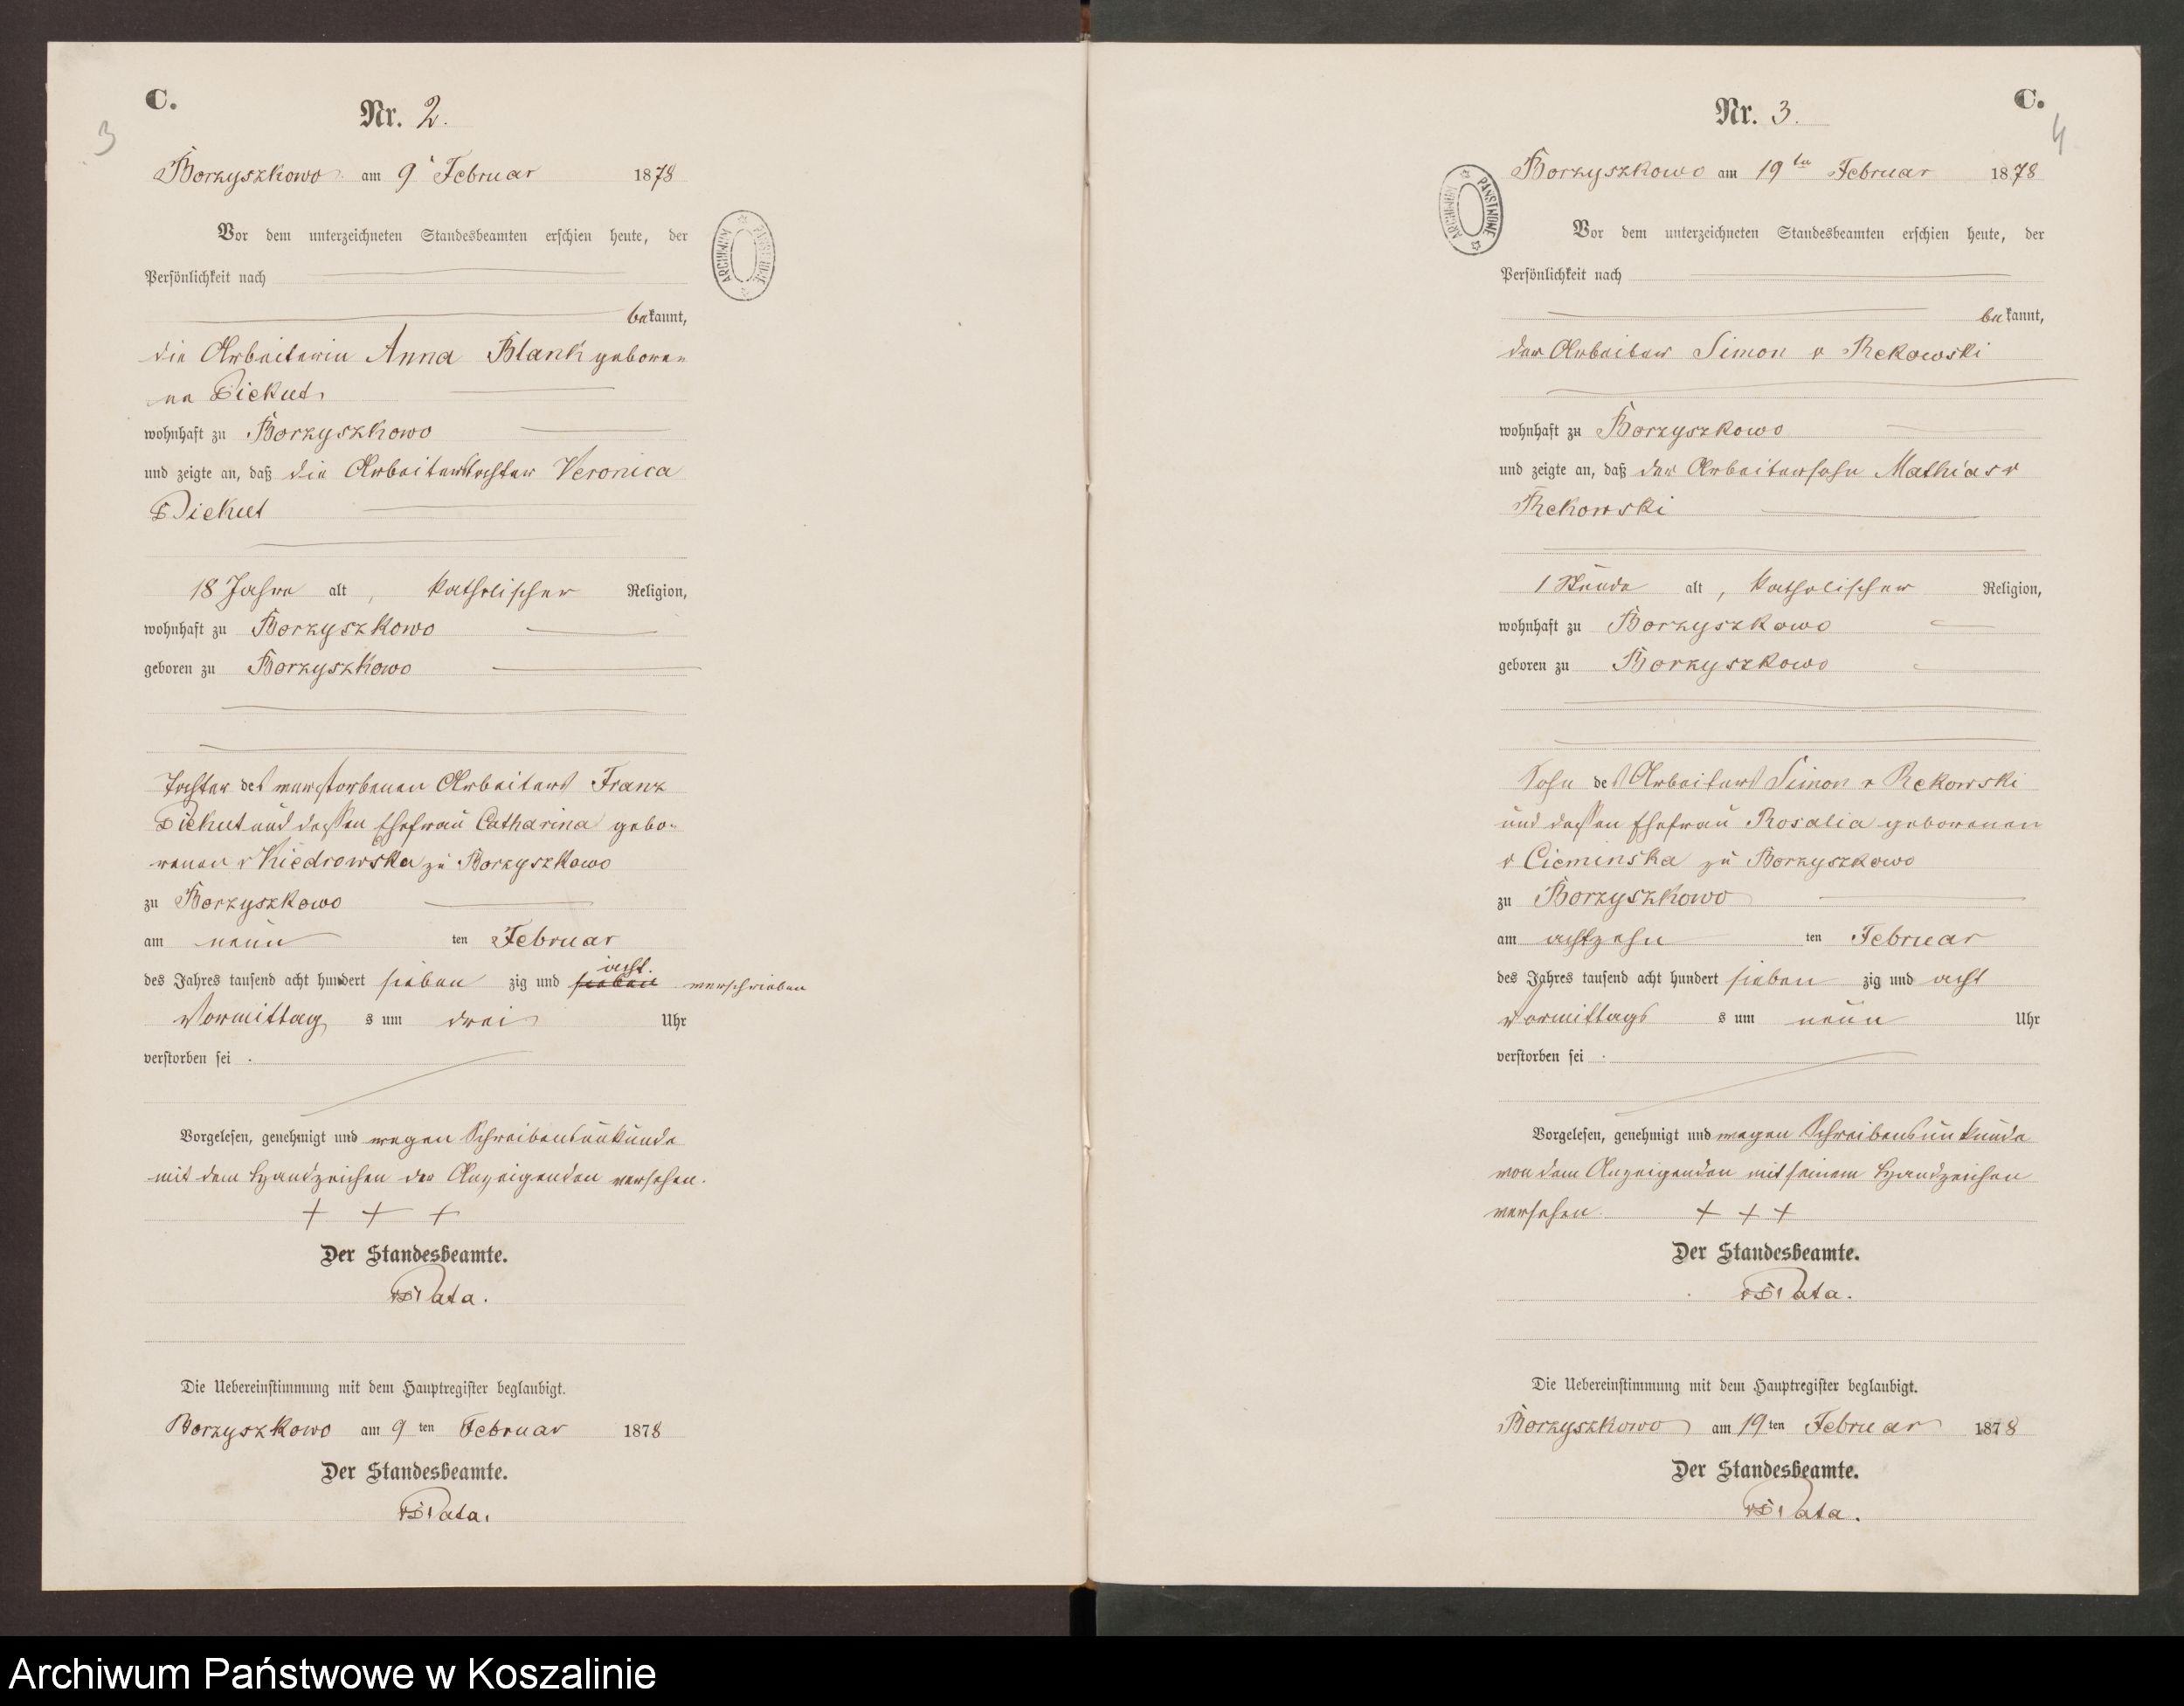 C.
3
Nr. 2.
Borzyszkowo am 9 Februar 1878
Vor dem unterzeichneten Standesbeamten erschien heute, der
Persönlichkeit nach
bekannt,
die Arbeiterin Anna Blank gebore-
ne Diekut,
wohnhaft zu Borzyszkowo
und zeigte an, daß die Arbeiterstochter Veronica
Diekut
18 Jahre alt, katholischer Religion,
wohnhaft zu Borzyszkowo
geboren zu Borzyszkowo
Tochter des verstorbenen Arbeiters Franz
Diekut und dessen Ehefrau Catharina gebo-
renen v Kiedrowska zu Borzyszkowo
zu Borzyszkowo
am neun ten Februar
des Jahres tausend acht hundert sieben zig und sieben acht. verschrieben
Vormittag s um drei Uhr
verstorben sei .
Vorgelesen, genehmigt und wegen Schreibensunkunde
mit dem Handzeichen der Anzeigenden versehen.
+ + +
Der Standesbeamte.
Die Uebereinstimmung mit dem Hauptregister beglaubigt.
Borzyszkowo am 9 ten Februar 1878
Der Standesbeamte.
ARCHIWUM PAŃSTWOWE
C.
4
Nr. 3.
Borzyszkowo am 19ten Februar 1878
Vor dem unterzeichneten Standesbeamten erschien heute, der
Persönlichkeit nach
bekannt,
der Arbeiter Simon v Rekowski
wohnhaft zu Borzyszkowo
und zeigte an, daß der Arbeitersohn Mathias v
Rekowski
1 Stunde alt, katholischer Religion,
wohnhaft zu Borzyszkowo
geboren zu Borzyszkowo
Sohn des Arbeiters Simon v Rekowski
und dessen Ehefrau Rosalia geborenen
v Cieminska zu Borzyszkowo
zu Borzyszkowo
am achtzehn ten Februar
des Jahres tausend acht hundert sieben zig und acht
Vormittags s um neun Uhr
verstorben sei .
Vorgelesen, genehmigt und wegen Schreibensunkunde
von dem Anzeigenden mit seinem Handzeichen
versehen. + + +
Der Standesbeamte.
Die Uebereinstimmung mit dem Hauptregister beglaubigt.
Borzyszkowo am 19 ten Februar 1878
Der Standesbeamte.
ARCHIWUM PAŃSTWOWE
Archiwum Państwowe w Koszalinie